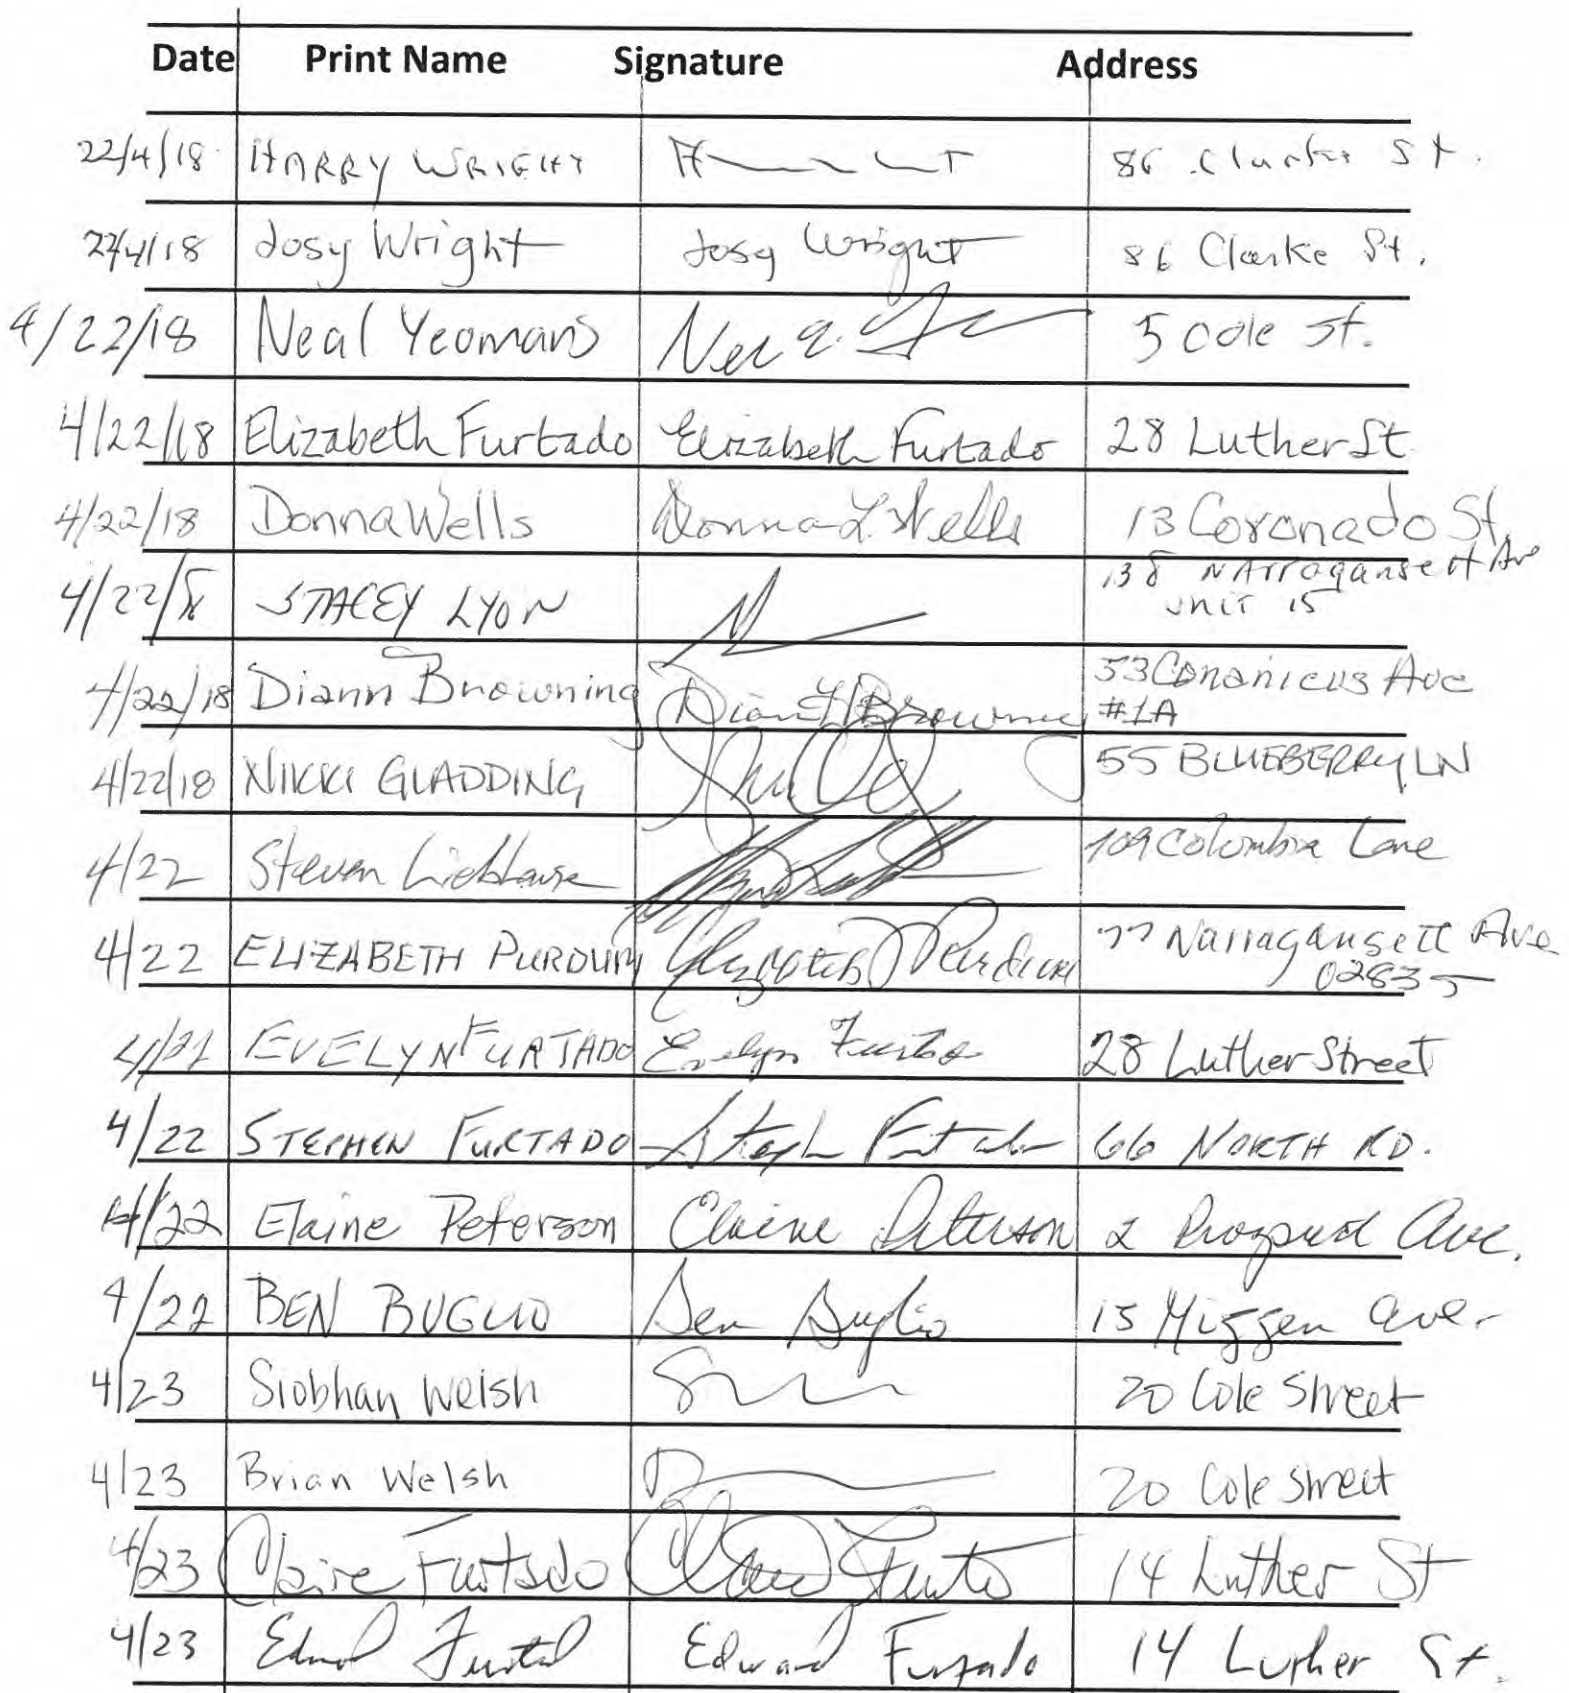 Date Print Name Signature Address
22/4/18 HARRY WRIGHT 86 Clarke St.
22/4/18 Josy Wright Josy Wright 86 Clarke St.
4/22/18 Neal Yeomans 5 Cole St.
4/22/18 Elizabeth Furtado Elizabeth Furtado 28 Luther St
4/22/18 Donna Wells Donna L. Wells 13 Coronado St.
4/22/18 STACEY LYON 138 NArragansett Ave
unit 15
4/22/18 Diann Browning Diann Browning 53 Conanicus Ave
#1A
4/22/18 NIKKI GLADDING 55 BLUEBERRY LN
4/22 Steven Liebhauser 109 Columbia Lane
4/22 ELIZABETH PURDUM Elizabeth Purdum 77 Narragansett Ave
02835
4/21 EVELYN FURTADO Evelyn Furtado 28 Luther Street
4/22 STEPHEN FURTADO Stephen Furtado 66 NORTH RD.
4/22 Elaine Peterson Elaine Peterson 2 Prospect Ave.
4/22 BEN BUGLIO Ben Buglio 15 Ave.
4/23 Siobhan Welsh 20 Cole Street
4/23 Brian Welsh 20 Cole Street
4/23 Claire Furtado Claire 14 Luther St
4/23 Edward Furtado Edward Furtado 14 Luther St.